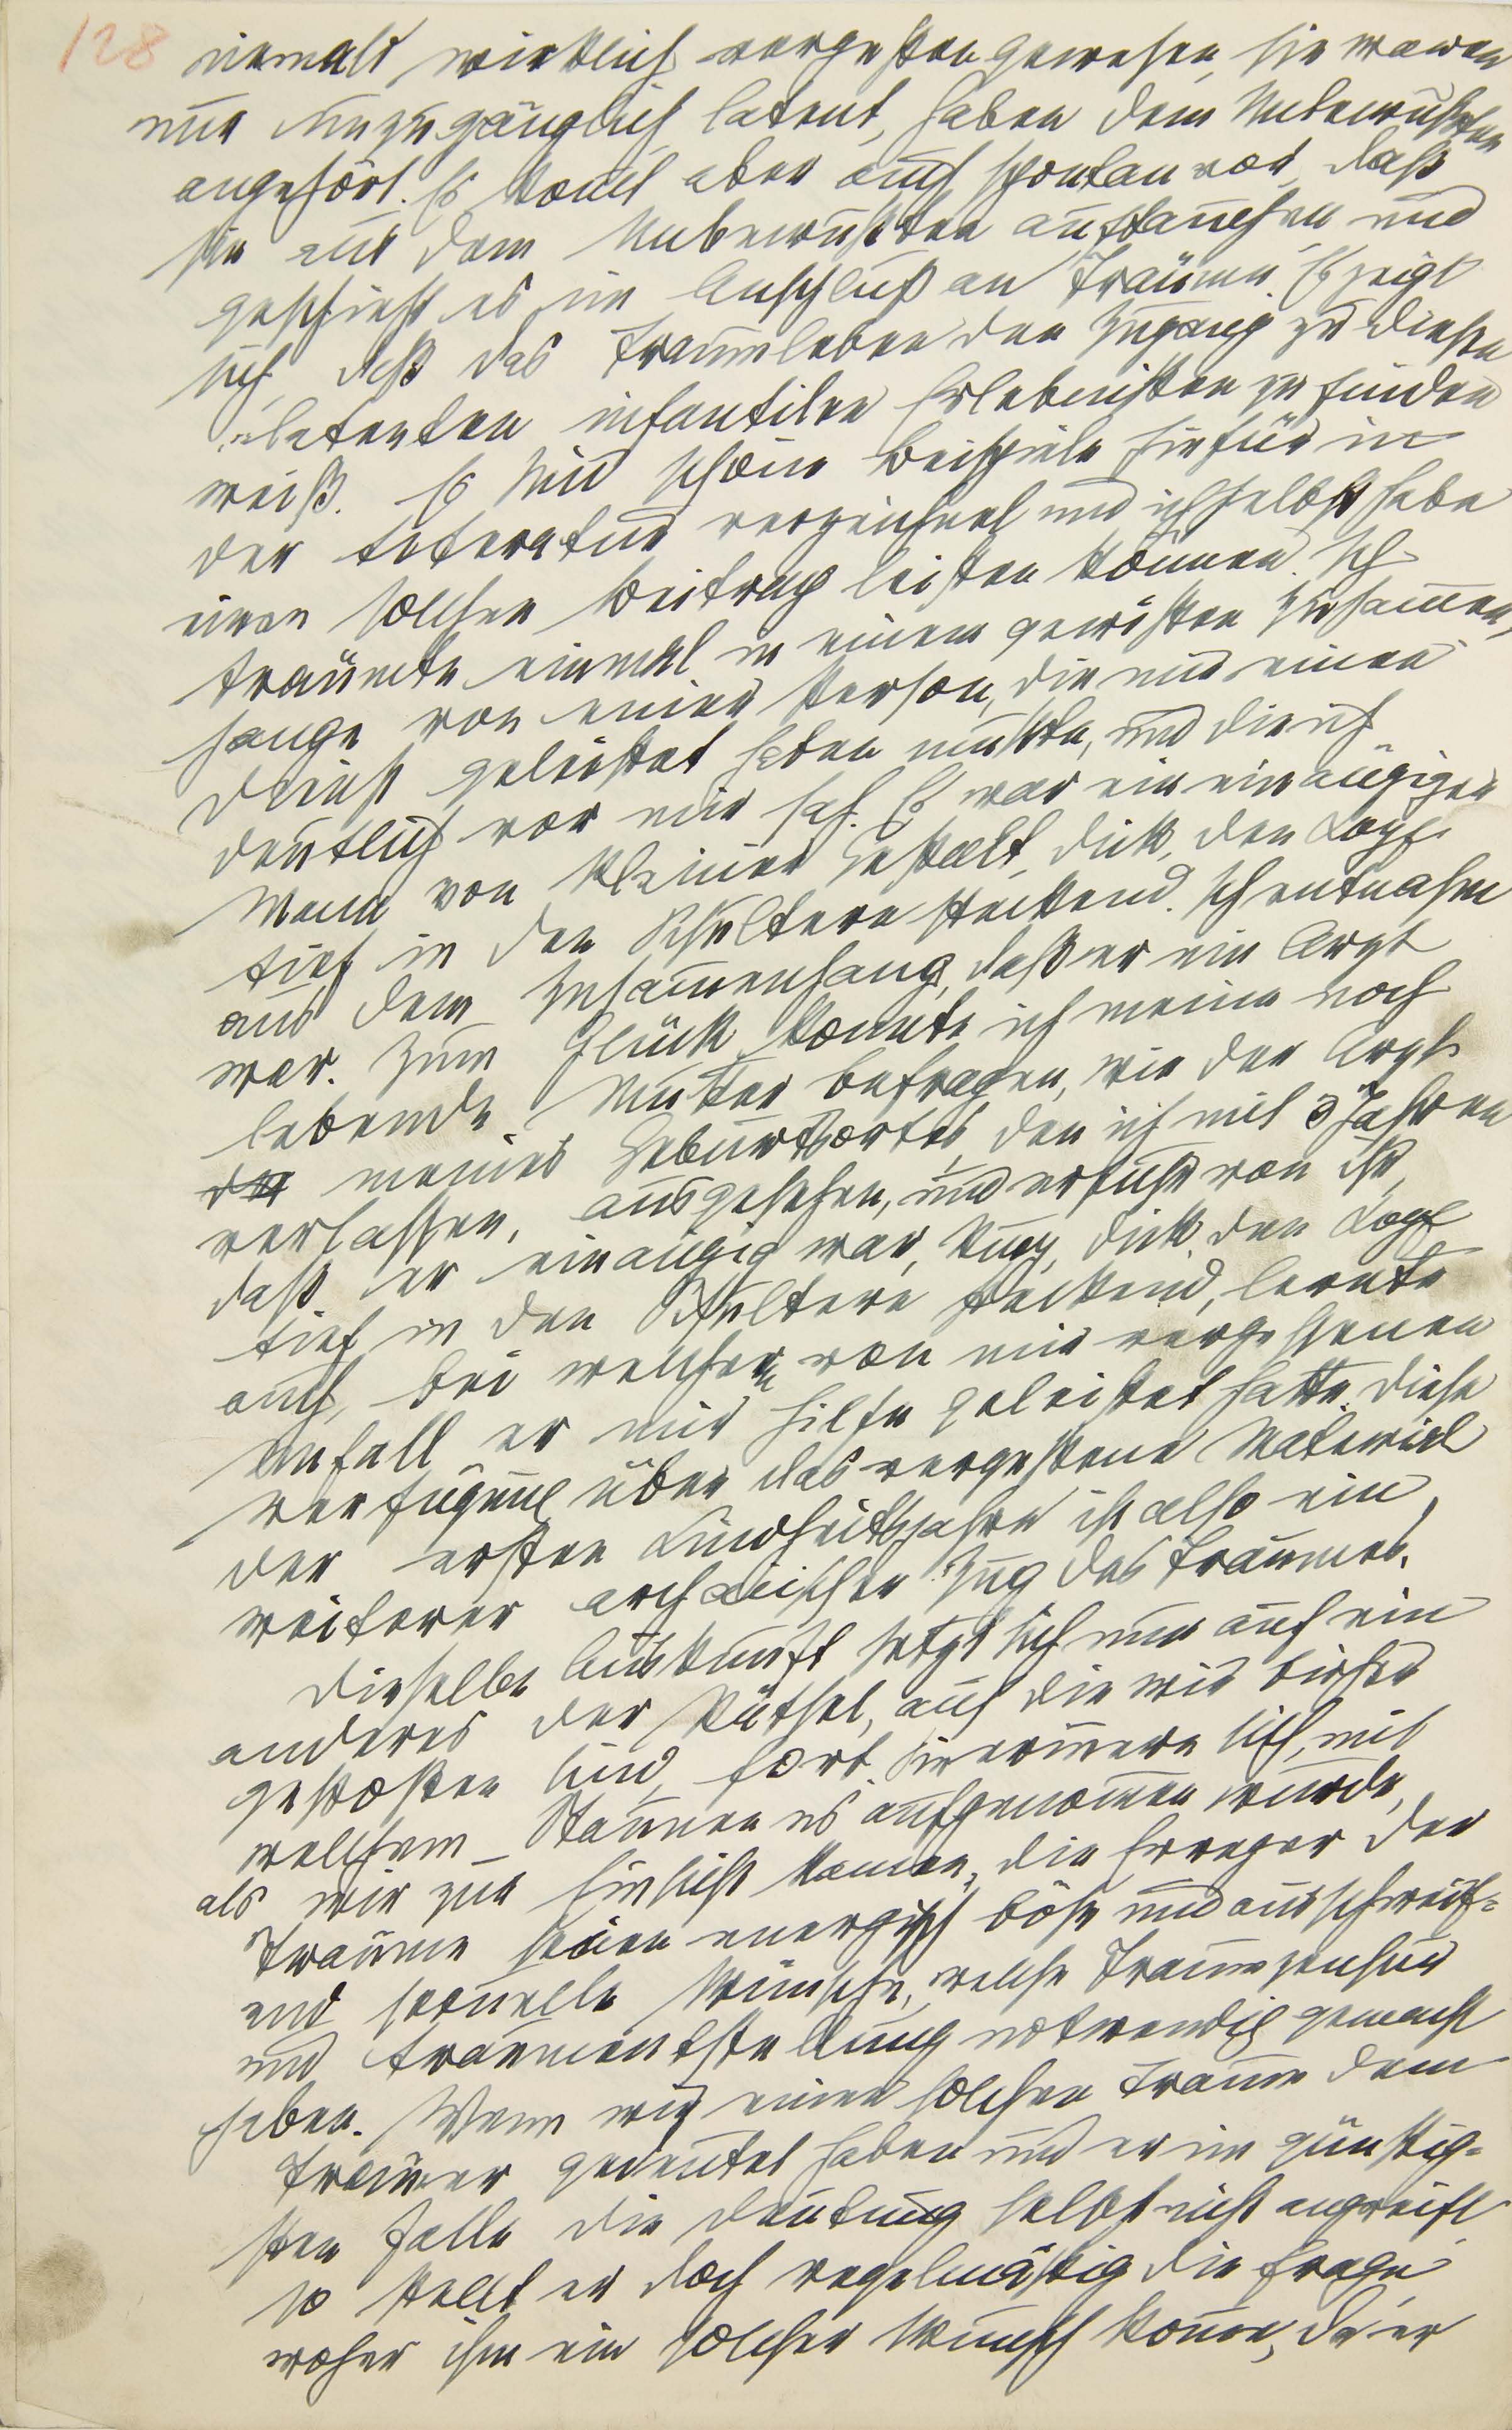 128
niemals wirklich vergessen gewesen, sie waren
nur unzugänglich, latent, haben dem Unbewußten
angehört. Es kom̅t aber auch spontan vor, daß
sie aus dem Unbewußten auftauchen und
geschieht es im Anschluß an Träume. Es zeigt
sich, daß das Traumleben den Zugang zu diesen
latenten infantilen Erlebnissen zu finden
weiß. Es sind schöne Beispiele hiefür in
der Literatur verzeichnet und ich selbst habe
einen solchen Beitrag leisten können. Ich
träumte einmal in einem gewissen Zusam̅en
hange von einer Person, die mir einen
Dienst geleistet haben mußte, und die ich
deutlich vor mir sah. Es war ein einäugiger
Mann von kleiner Gestalt, dick, den Kopf
tief in den Schultern steckend. Ich entnahm
aus dem Zusam̅enhang, daß er ein Arzt
war. Zum Glück konnte ich meine noch
lebende Mutter befragen, wie der Arzt
meines Geburtsortes, den ich mit 3 Jahren
verlassen, ausgesehen, und erfuhr von ihr,
daß er einäugig war, kurz, dick, den Kopf
tief in den Schultern steckend, lernte
auch, bei welchem von mir vergessenen
Unfall er mir Hilfe geleistet hatte. Diese
Verfügung über das vergessene Material
der ersten Kindheitsjahre ist also ein
weiterer archaischer Zug des Traumes.
Dieselbe Auskunft setzt sich nun auf ein
anderes der Rätsel, auf die wir bisher
gestoßen sind, fort. Sie erinnern sich, mit
welchem Staunen es aufgenom̅en wurde,
als wir zur Einsicht kamen, die Erreger der
Träume seien energisch böse und ausschweif=
end sexuelle Wünsche, welche Traumzensur
und Traumentstellung notwendig gemacht
haben. Wenn wir einen solchen Traum dem
Träumer gedeutet haben und er im günstig=
sten Falle die Deutung selbst nicht angreift
so stellt er doch regelmäßig die Frage
woher ihm ein solcher Wunsch kom̅e, da er